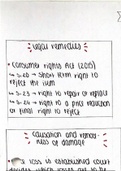 legal remedies
• consumer rights Act (2015)
↳ s.20 → short term right to
reject the item
↳ s.23 → right to repair or replace
↳ s.24 → right to a price reduction
or final right to reject
causation and remote-
ness of damage
loss is established court